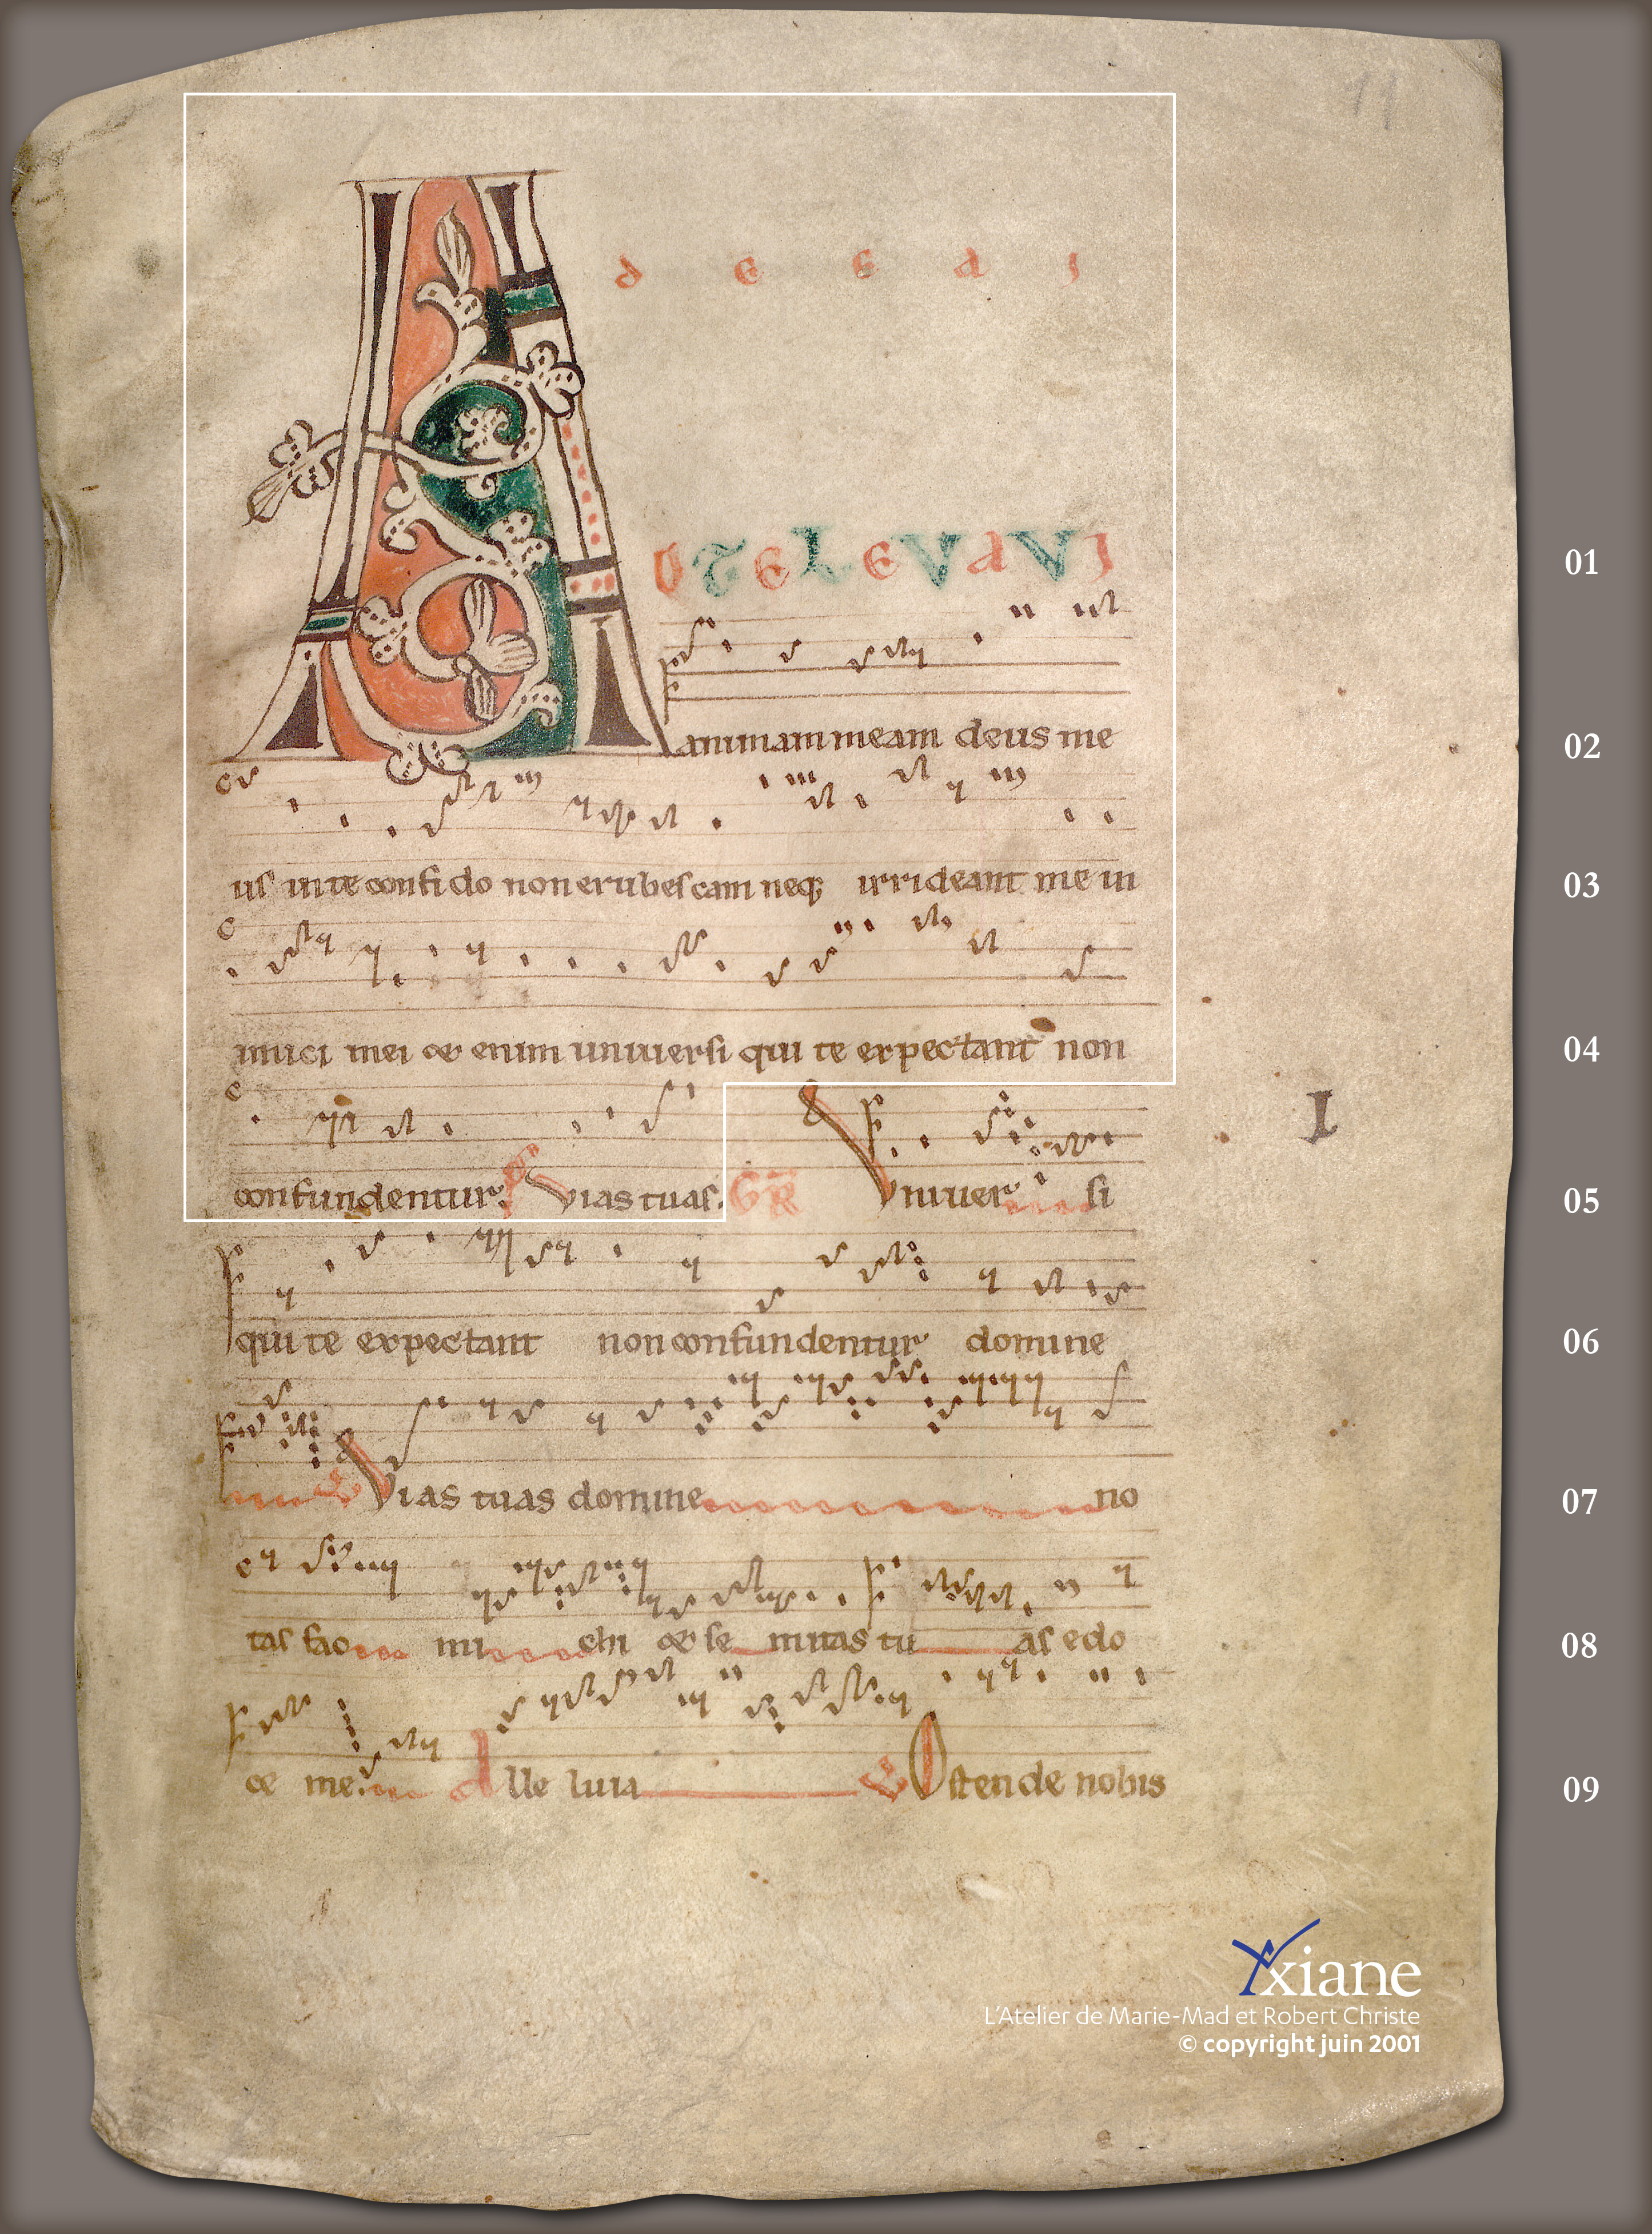 11
A d e e a i
UTELEVAVI 01
animam meam deus me 02
us inte confido non erubescam neq; irrideant me in 03
imici mei & enim uniuersi qui te expectant non 04
I
confundentur. Ps Vias tuas. GR Vniuer si 05
qui te expectant non confundentur domine 06
V Vias tuas domine no 07
tas fac mi chi & se mitas tu as edo 08
ce me. Alle luia V Ostende nobis 09
xiane
L'Atelier de Marie-Mad et Robert Christe
© copyright juin 2001